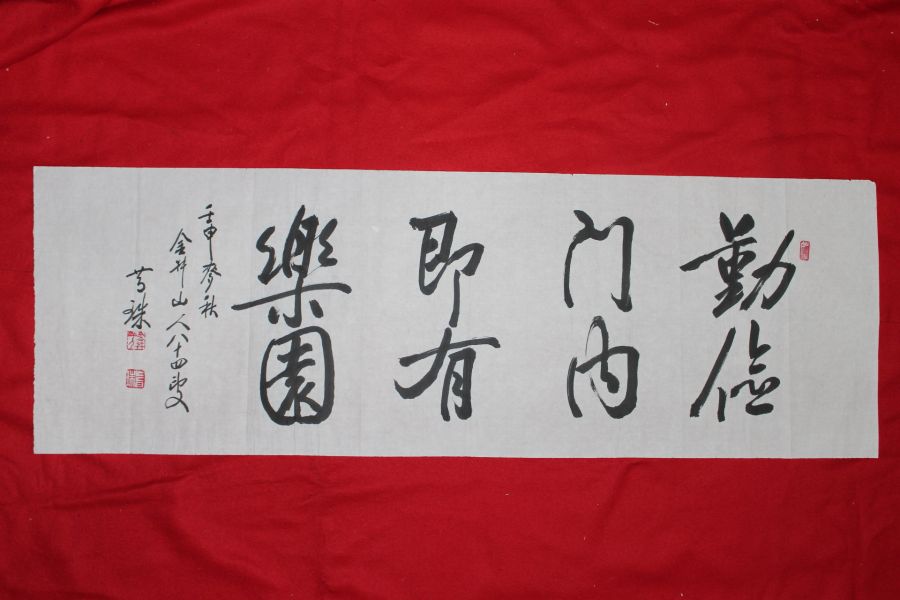 勤儉
門内
即有
樂園
壬申麥秋
金井山人八十四叟